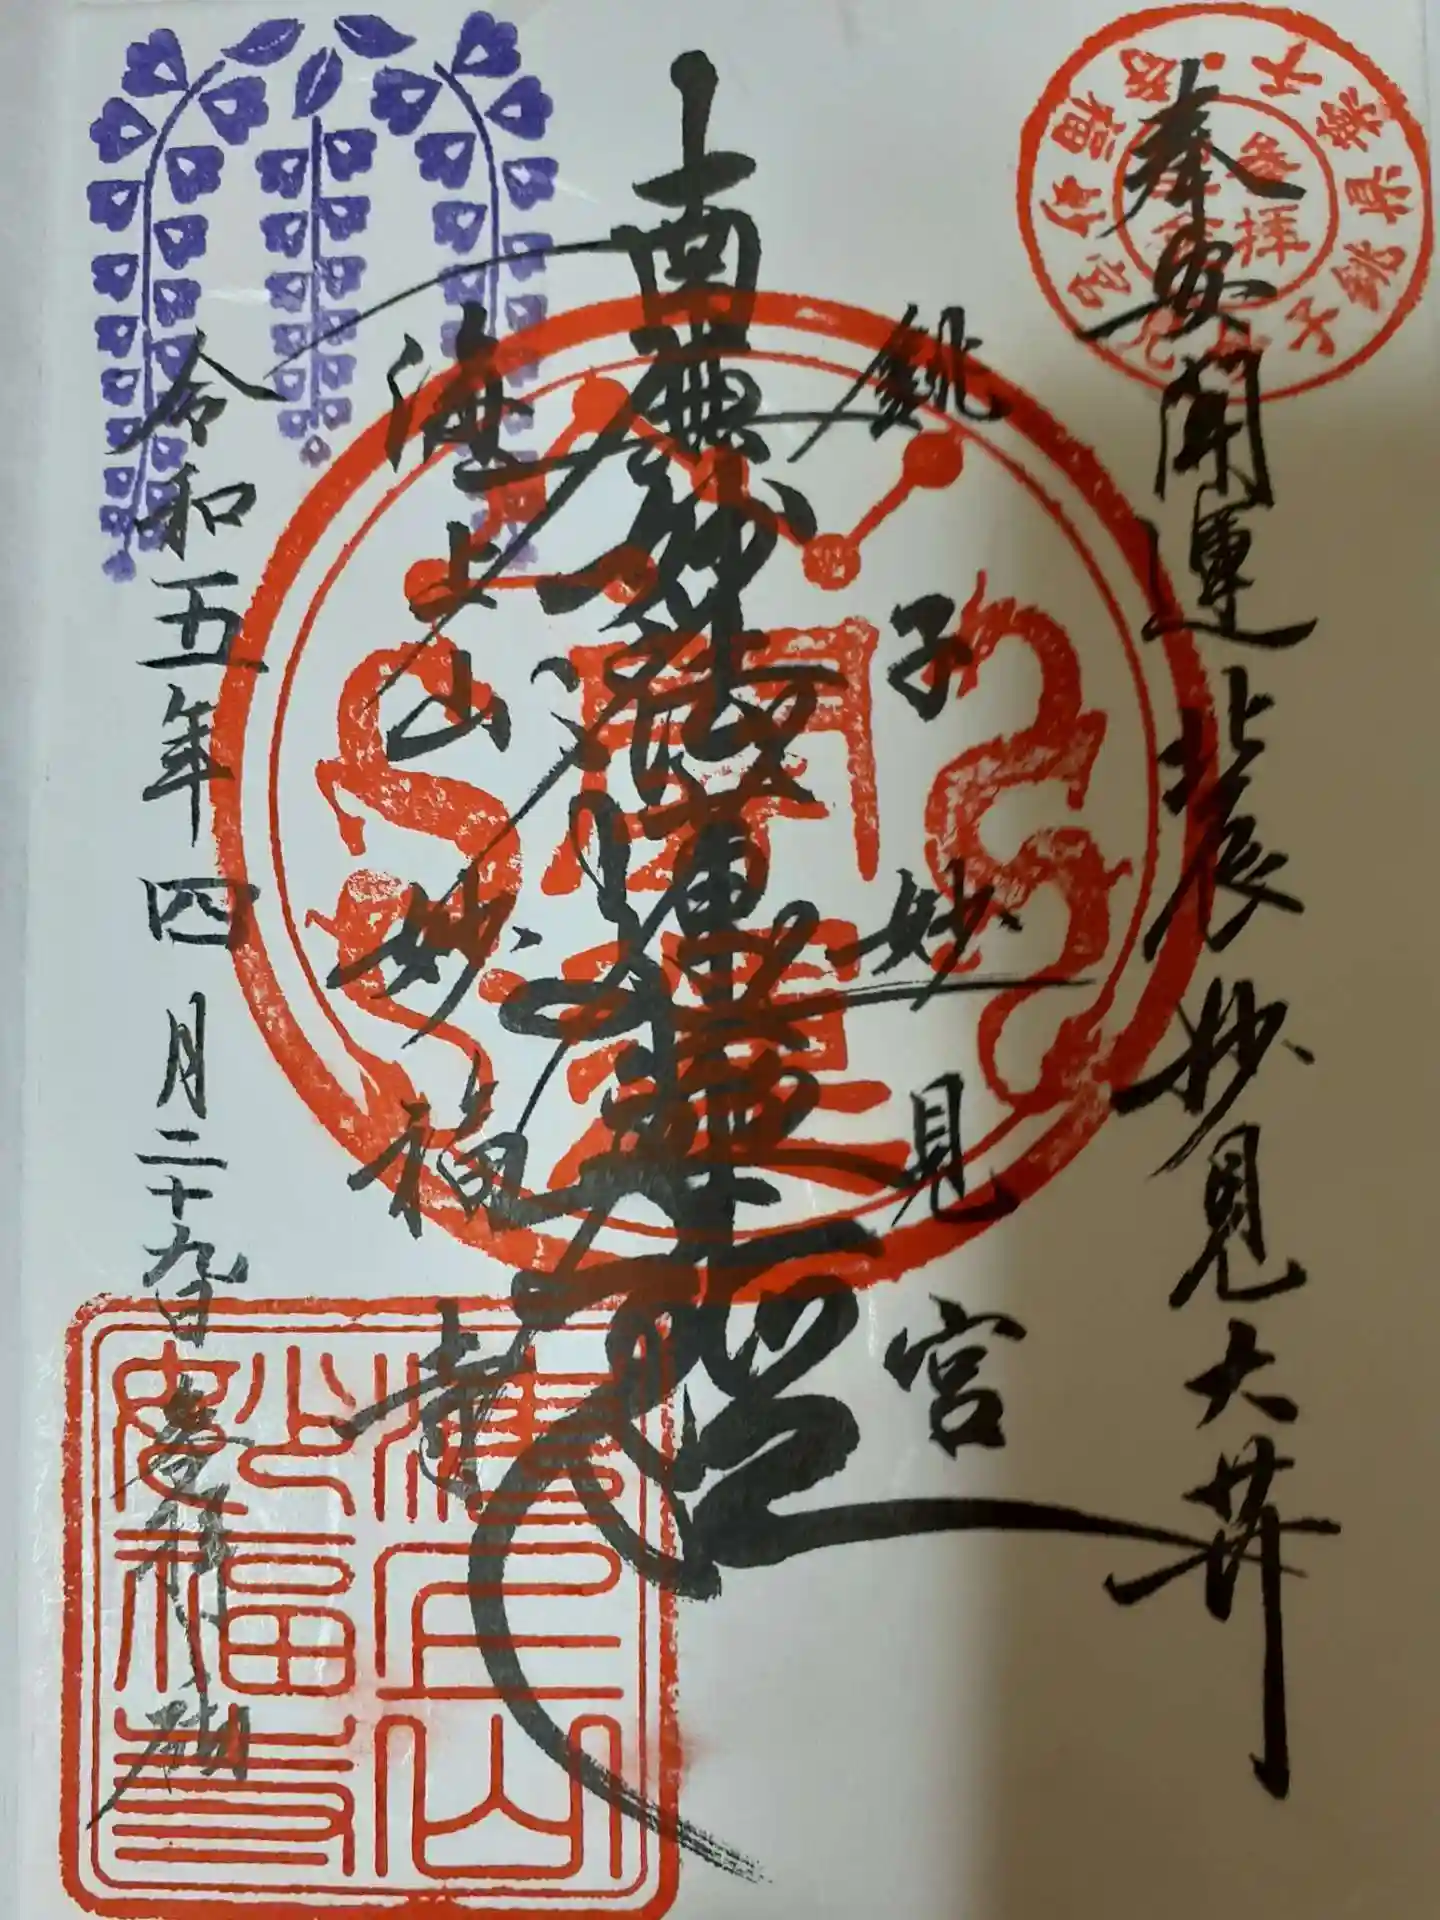 奉安開運北辰妙見大菩
銚子妙見宮
南無妙法蓮華経
海上山妙福寺
令和五年四月二十九日
海上山
妙福寺